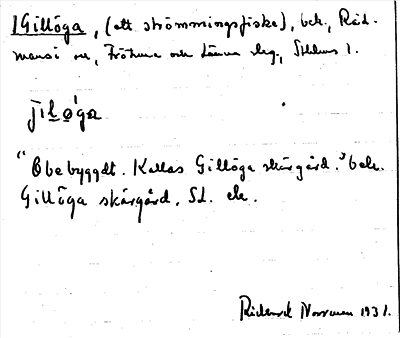 Gillöga, (ett strömmingsfiske), bek., Råd-
mansö sn, Frötuna och Länna skg, Sthlms l.
jıløga
"Obebyggdt. Kallas Gillöga skärgård." bek.
Gillöga skärgård, Sd. ek.
Rickard Norrman 1931.